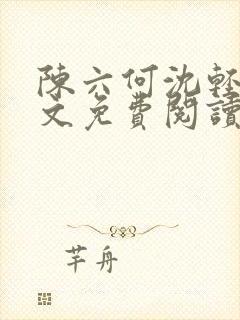 陳六何沈輕
文免費閱讀
芊舟